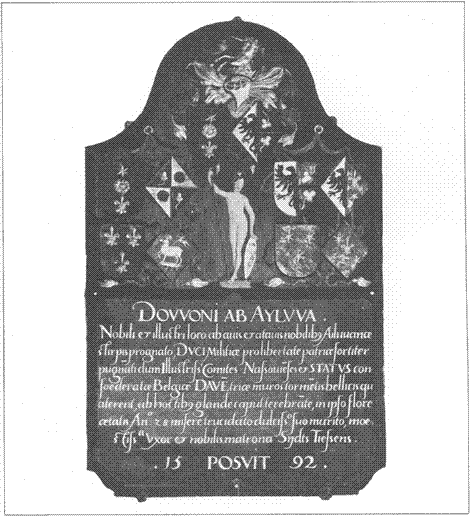 DOVVONI AB AYLVVA .
Nobili et illustri loco ab avis et atavis nobilib9 Ailuuanæ
stirpis prognato DVCI Militiæ pro libertate patriæ fortiter
pugnāti dum Illustriss Comites Nassouiēses et STATVS con
foederatæ Belgicæ DAVĒtriæ muros tormētis bellicis qu
aterent, ab hostib9 glande caput terebrāte, in ipso flore
ætatis An° 28 misere trucidato dulciss° suo marito, moe
stissa Vxor et nobilis matrona Sydts Tiessens.
. 15 POSVIT 92 .